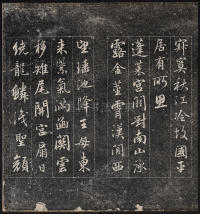 寂寞秋江冷故國平
居有所思
蓬萊宮闕對南山承
露金莖霄漢間西
望瑤池降王母東
來紫氣滿函關雲
移雉尾開宮扇日
繞龍鱗識聖顏